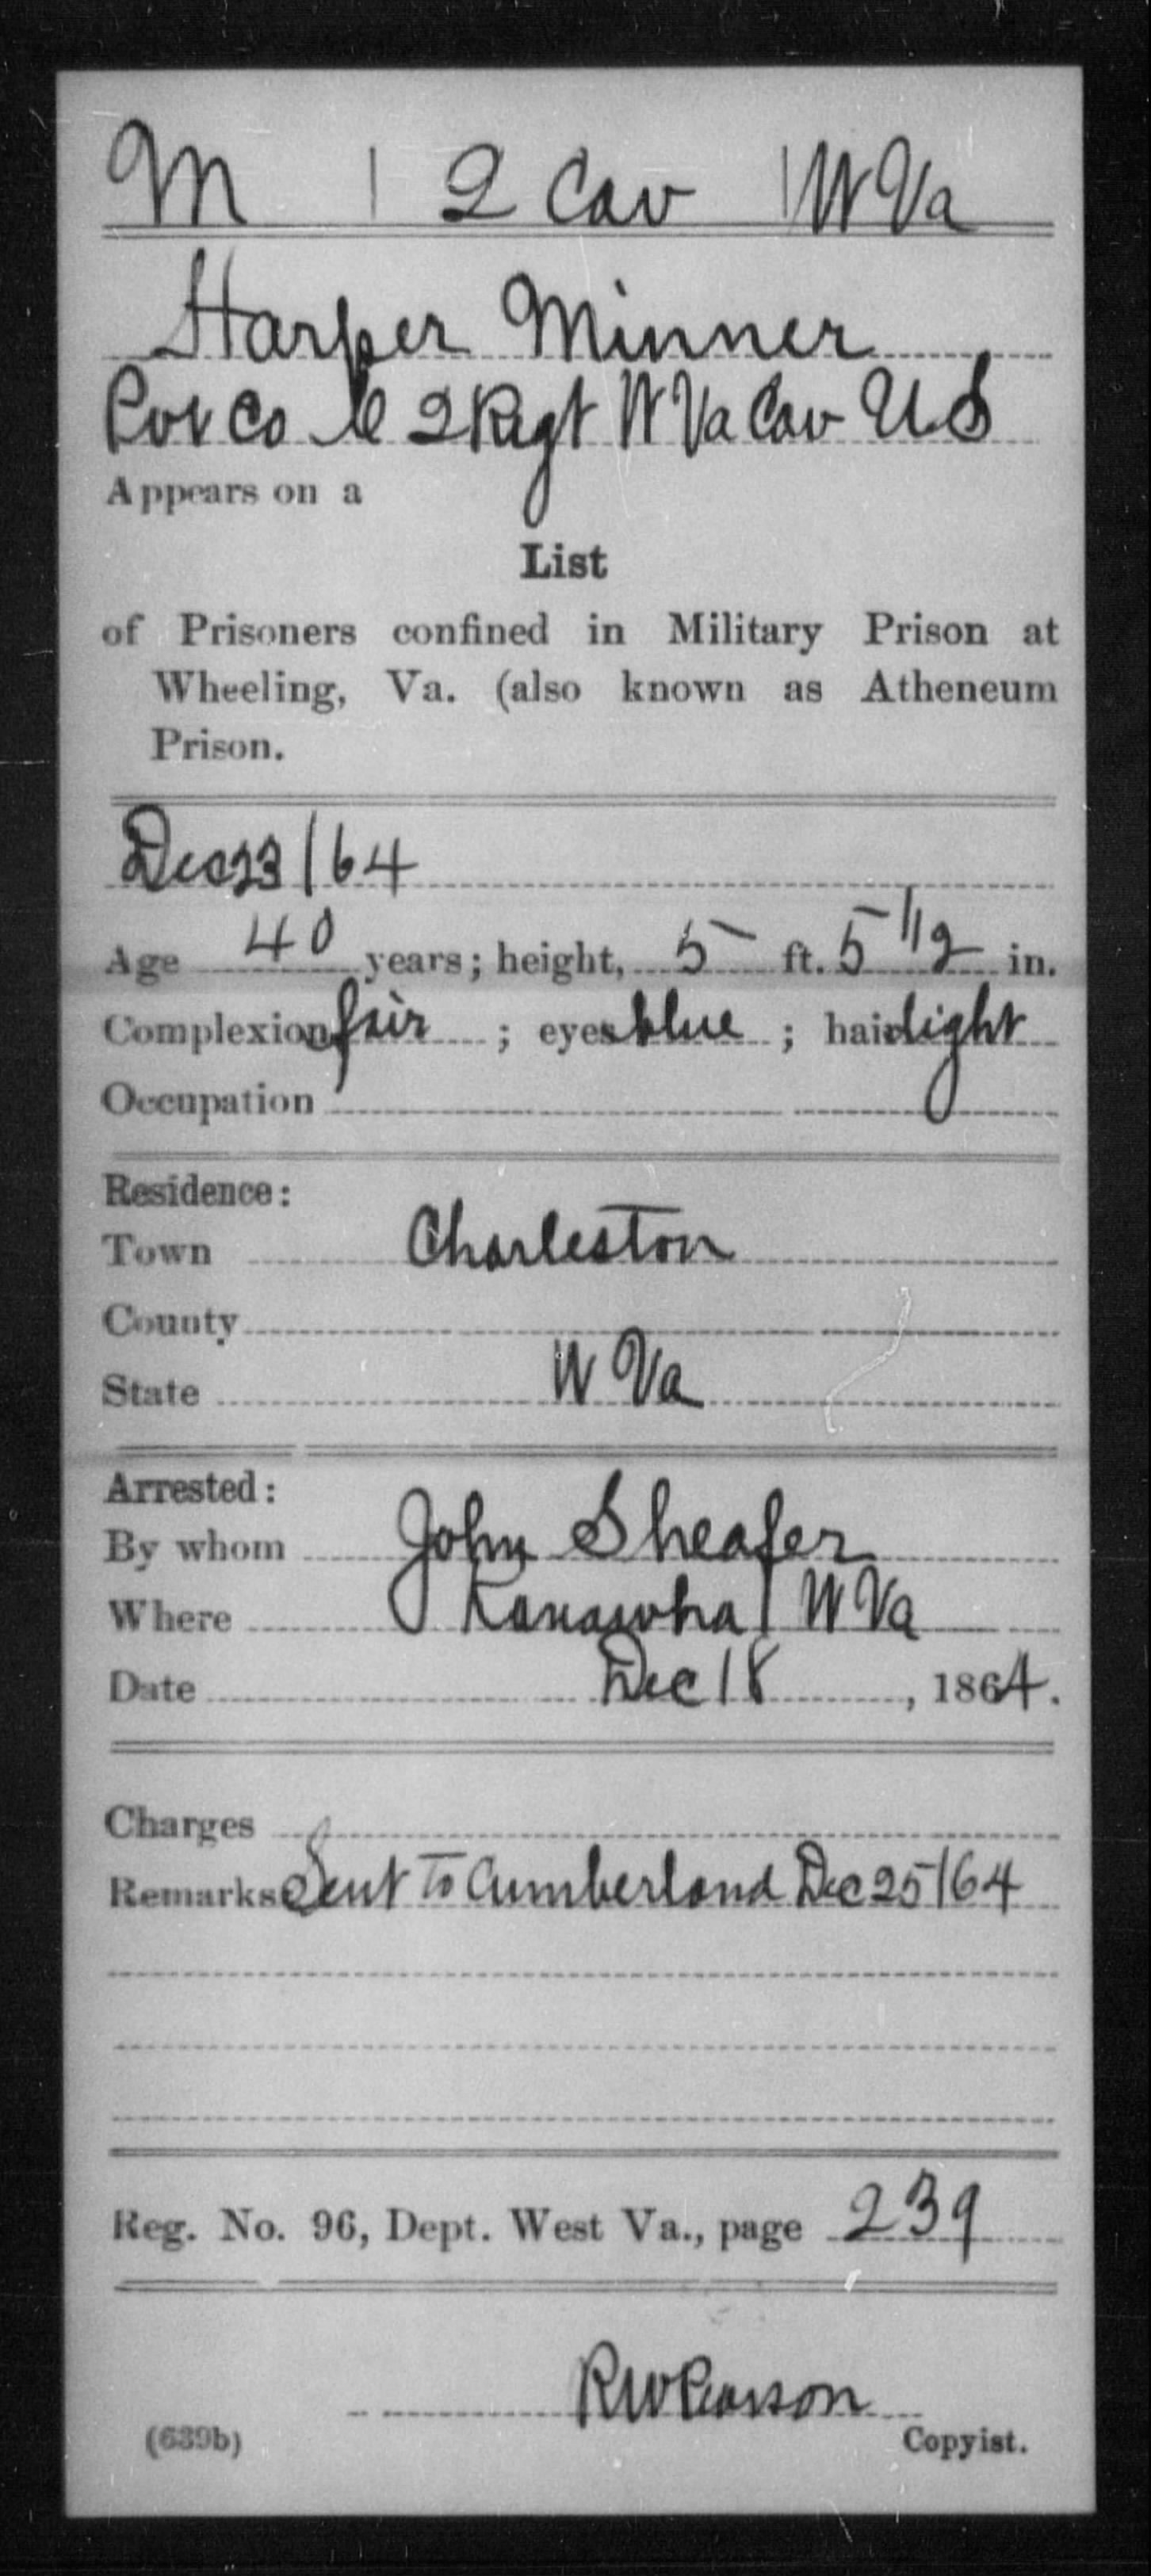 M | 2 Cav | W Va
Harper Minner
Pvt Co 2 Regt W Va Cav U S
Appears on a
List
of Prisoners confined in Military Prison at
Wheeling, Va. (also known as Atheneum
Prison.
Dec 23/64
Age 40 years; height, 5 ft. 5 1/2 in.
Complexion fair ; eyes blue ; hair light
Occupation
Residence:
Town Charleston
County
State W Va
Arrested:
By whom John Sheafer
Where Kanawha / W Va
Date Dec 18, 1864.
Charges
Remarks Sent To Cumberland Dec 25/64
Reg. No. 96, Dept. West Va., page 239
R W Pearson
(639b) Copyist.